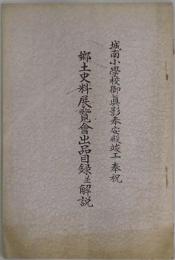 城南小學校御眞影奉安殿竣工奉祝
鄕土史料展覽會出品目録並解説